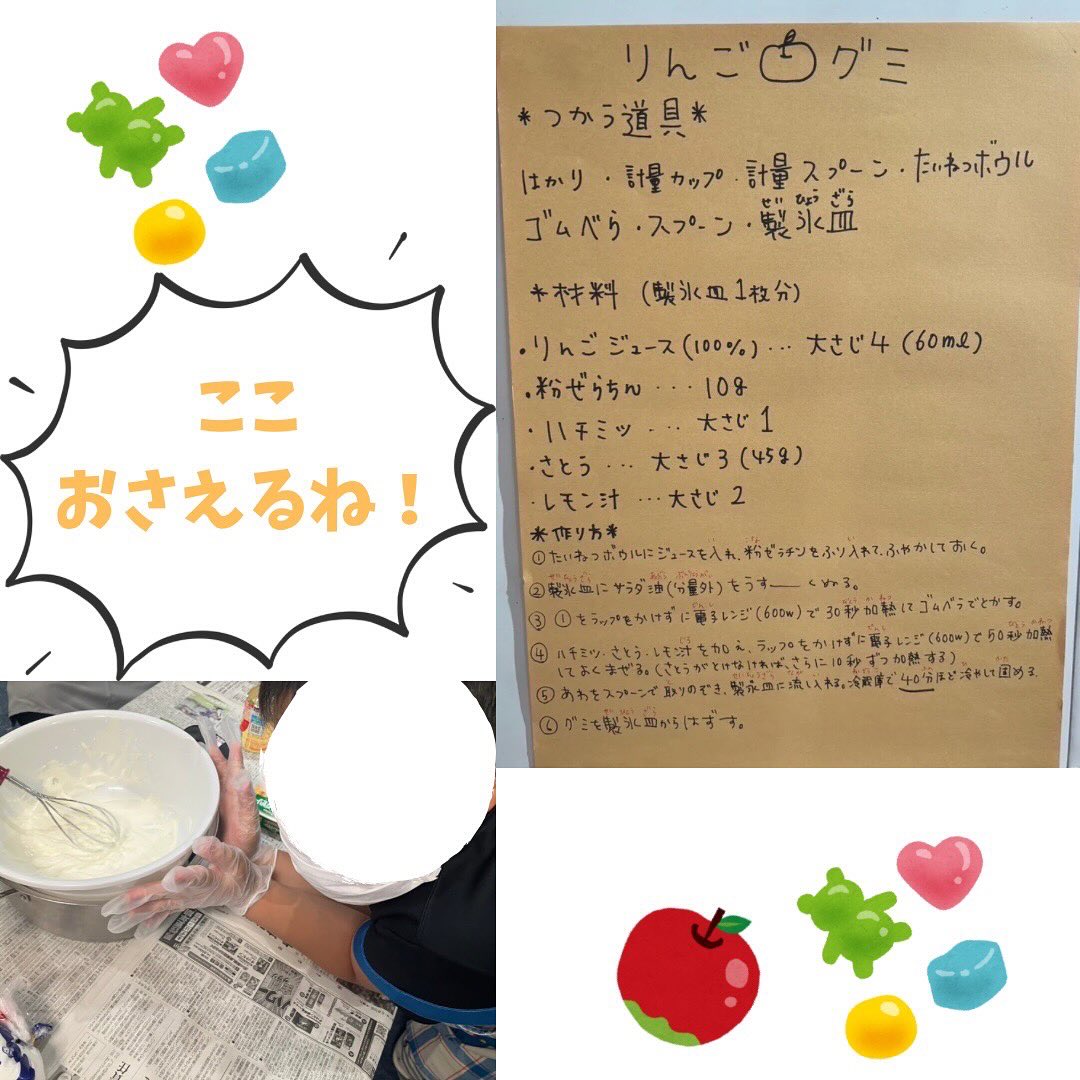 ここ
おさえるね！
りんご グミ
*つかう道具*
はかり・計量カップ・計量スプーン・たいねつボウル
ゴムべら・スプーン・製氷皿
せい ひょう ざら
*材料 (製氷皿1枚分)
・りんごジュース(100%)…大さじ4(60ml)
・粉ぜらちん…10g
・ハチミツ…大さじ1
・さとう…大さじ3(45g)
・レモン汁…大さじ2
*作り方*
①たいねつボウルにジュースを入れ、粉ゼラチンをふり入れて、ふやかしておく。
②製氷皿にサラダ油(分量外)をうす——くぬる。
③①をラップをかけずに電子レンジ(600w)で30秒加熱してゴムベラでとかす。
④ハチミツ・さとう・レモン汁を加え、ラップをかけずに電子レンジ(600w)で50秒加熱
してよくまぜる。(さとうがとけなければ、さらに10秒ずつ加熱する)
⑤あわをスプーンで取りのぞき、製氷皿に流し入れる。冷蔵庫で40分ほど冷やして固める.
⑥グミを製氷皿からはずす。